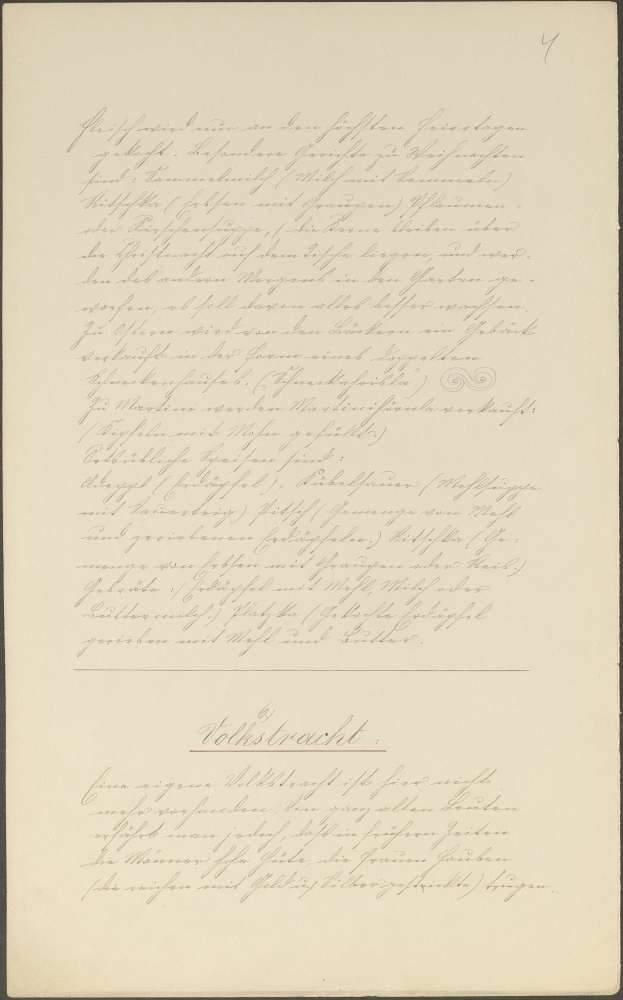 4
Fleisch wird nur an den höchsten Feiertagen
gekocht. Besondere Gerichte zu Weihnachten
sind: Semmelmilch (Milch mit Semmeln)
Kitschka (Erbsen mit Graupen) Pflaumen-
oder Kirschensuppe, (die Kerne bleiben über
die Christnacht auf dem Tische liegen, und wer-
den des andern Morgens in den Garten ge-
worfen, es soll davon alles besser wachsen.
Zu Ostern wird von den Bäckern ein Gebäck
verkauft in der Form eines doppelten
Schneckenhauses. („Schneckahaisla")
Zu Martini werden Martinihörnla verkauft:
(Kipfeln mit Mohn gefüllt.)
Ortsübliche Speisen sind:
(Erdäpfel), (Mehlsuppe
mit Sauerteig) (Gemenge von Mehl
und geriebenen Erdäpfeln.) Kitschka (Ge-
menge von Erbsen mit Graupen oder Reis.)
Erdäpfel mit Mehl, Milch oder
Buttermilch.) (Gekochte Erdäpfel
gerieben mit Mehl und Butter.
6)
Volkstracht:
Eine eigene Volkstracht ist hier nicht
mehr vorhanden. Von ganz alten Leuten
erfährt man jedoch, daß in frühern Zeiten
die Männer hohe Hüte, die Frauen Hauben
(die reichen mit Gold u. Silber gestickte) trugen.